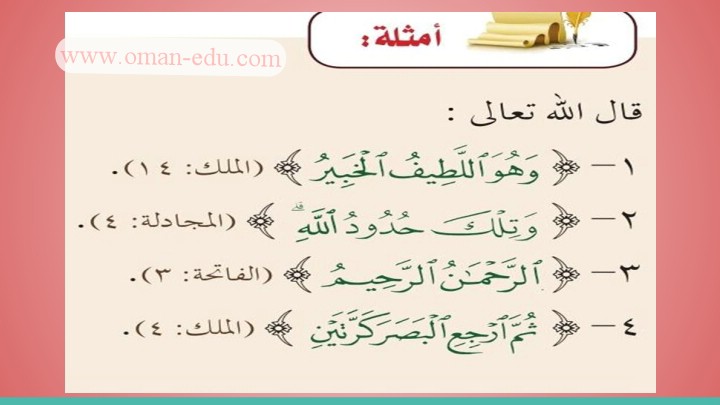 www.oman-edu.com
أمثلة:
قال الله تعالى :
١– ﴿ وَهُوَ ٱللَّطِيفُ ٱلْخَبِيرُ ﴾ (الملك: ١٤).
٢– ﴿ وَتِلْكَ حُدُودُ ٱللَّهِ ۗ ﴾ (المجادلة: ٤).
٣– ﴿ ٱلرَّحْمَٰنُ ٱلرَّحِيمُ ﴾ (الفاتحة: ٣).
٤– ﴿ ثُمَّ ٱرْجِعِ ٱلْبَصَرَ كَرَّتَيْنِ ﴾ (الملك: ٤).